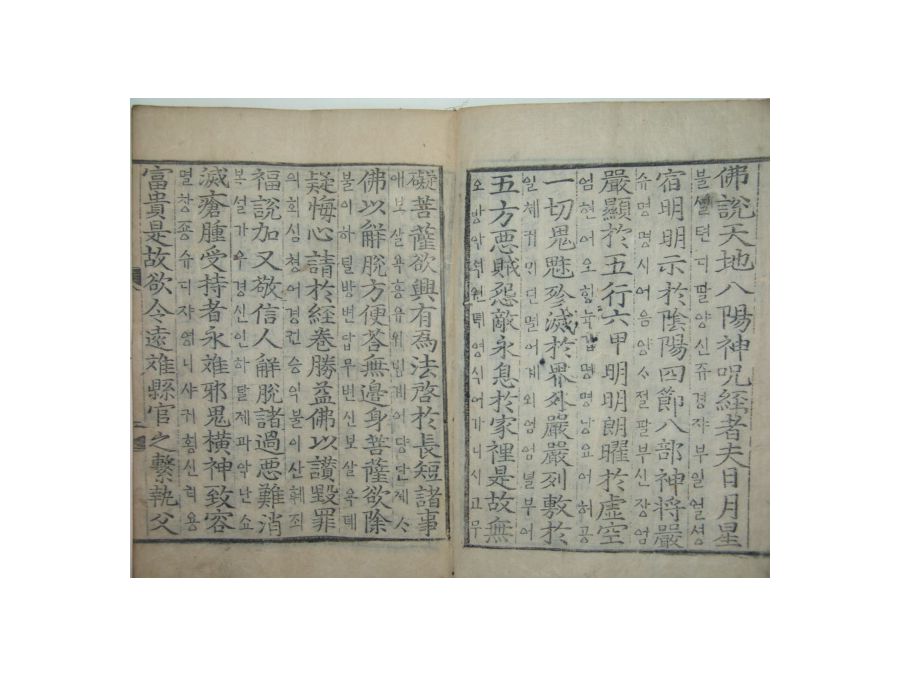 佛說天地八陽神呪經者夫日月星
불셜텬디팔양신쥬경쟈부일월셩
宿明明示於陰陽四節八部神将嚴
슈명명시어음양ᄉ절팔부신쟝엄
嚴顯於五行六甲明明朗曜於虛空
엄현어오ᄒᆡᆼ뉵갑명명낭요어허공
一切鬼魅殄滅於界外嚴嚴列敷於
일체귀ᄆᆡ딘멸어계외엄엄녈부어
五方惡賊怨敵永息於家裡是故無
오방악적원뎍영식어가니시고무
礙菩薩欲興有為法啓於長短諸事
애보살욕흥유위법계어댱단졔ᄉ
佛以解脫方便荅無邊身菩薩欲除
불이하탈방변답무변신보살욕뎨
疑悔心請於經卷勝益佛以讃毀罪
의회심쳥어경권승익불이찬훼죄
福說加又敬信人解脫諸過惡難消
복셜가우경신인하탈졔과악난쇼
滅瘡腫受持者永難邪鬼橫神致容
멸창죵슈디쟈영니샤귀횡신치용
富貴是故欲令遠难縣官之繫執父